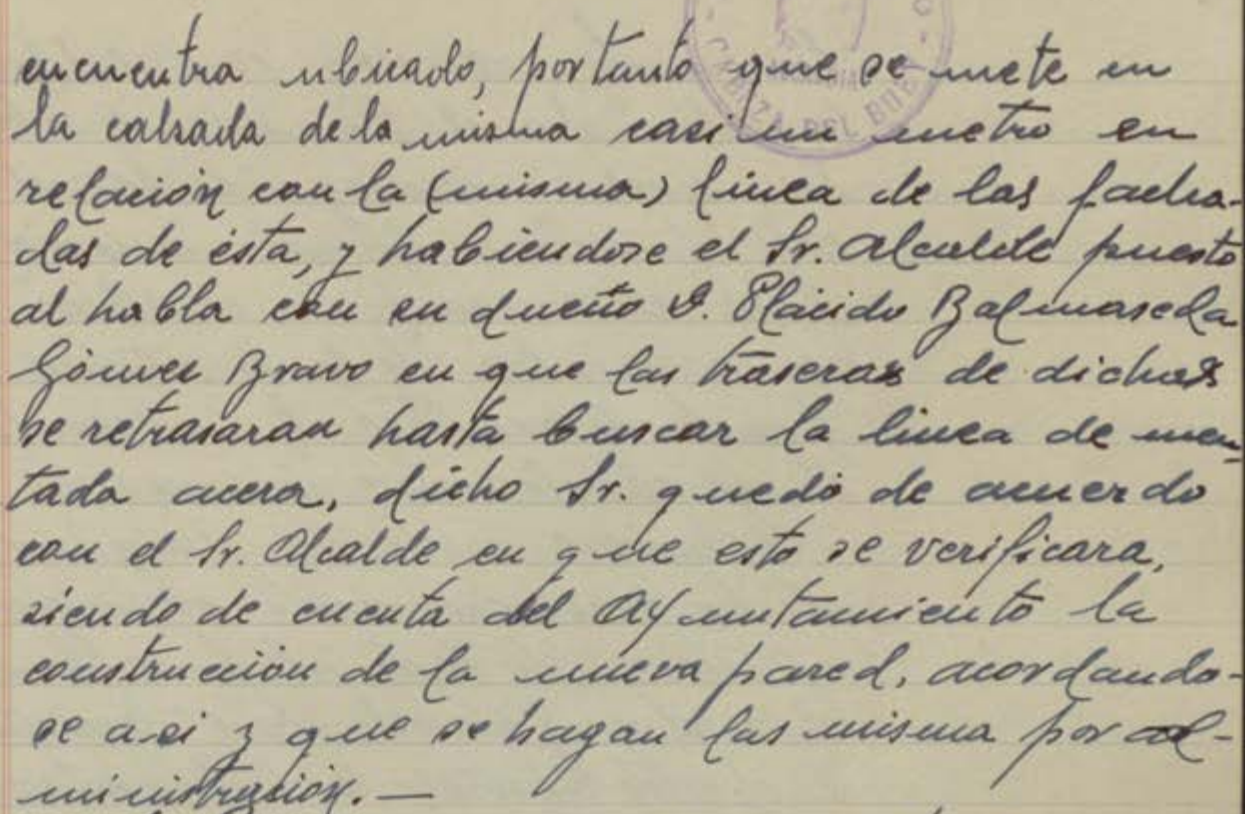 CABEZA DEL BUEY
encuentra ubicado, por tanto que se mete en
la calsada de la misma casi un metro en
relación con la (misma) línea de las facha-
das de ésta, y habiendose el Sr. Alcalde puesto
al habla con su dueño D. Plácido Balmaseda
Gómez Bravo en que las traseras de dichas
se retrasaran hasta buscar la linea de men-
tada acera, dicho Sr. quedó de acuerdo
con el Sr. Alcalde en que esto se verificara,
siendo de cuenta del Ayuntamiento la
construcción de la nueva pared, acordando-
se asi y que se hagan las misma por ad-
ministración. —